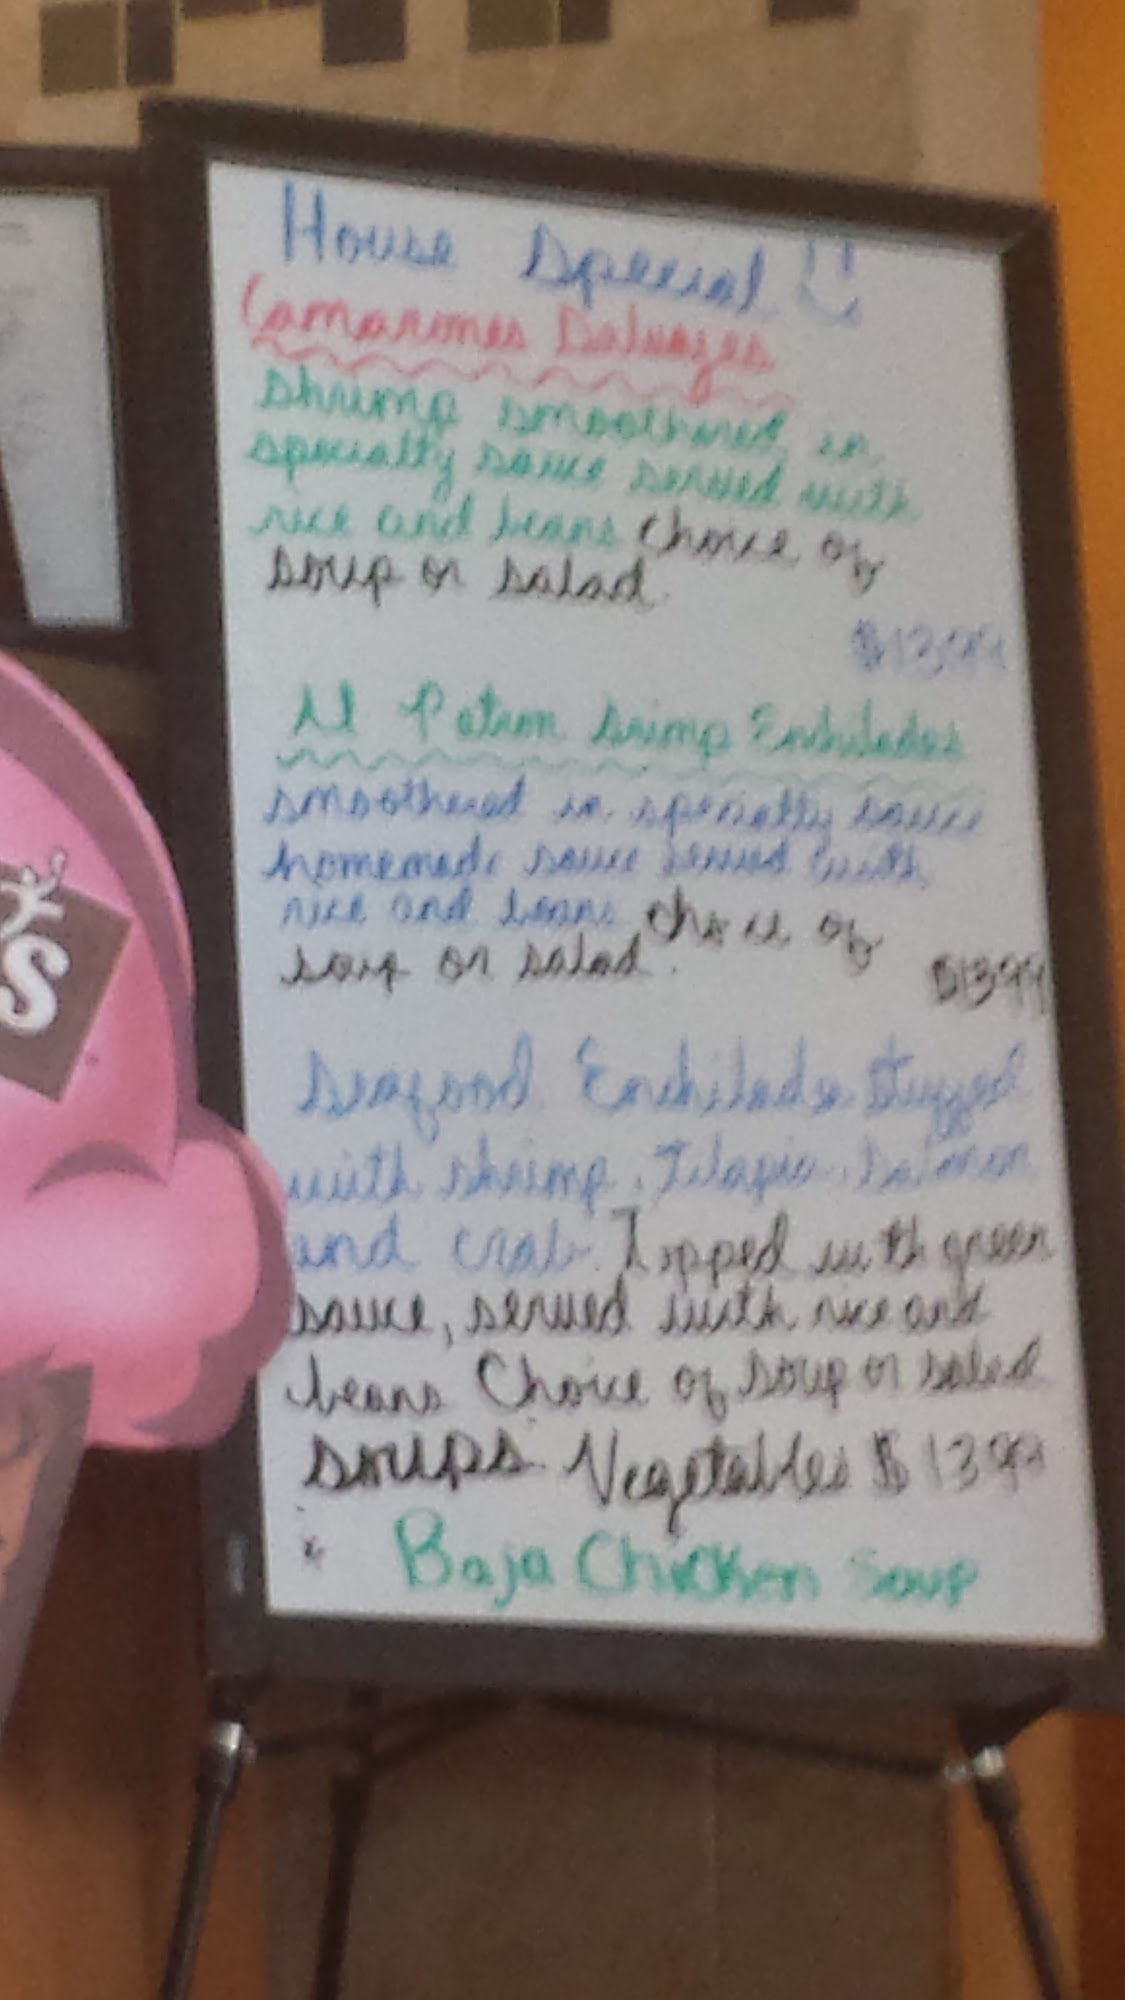 House Special
Camarones Salvajes
Shrimp smoothered in
specialty sauce served with
rice and beans choice of
soup or salad.
$13.99
El Patron Srimp Enchiladas
smoothered in specialty sauce
homemade sauce served with
rice and beans choice of
soup or salad.
$13.99
Seafood Enchilada stuffed
with shrimp, Tilapia, Salmon
and crab. Topped with green
sauce, served with rice and
beans Choice of soup or salad
soups Vegetables $13.99
* Baja Chicken Soup
S